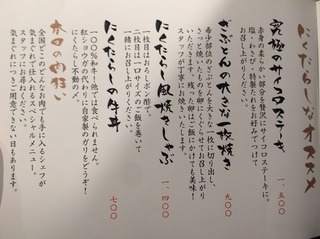 にくたらしいオススメ
究極のサイコロステーキ
一、五〇〇
赤身の柔らかい部分を贅沢にサイコロステーキに。
塩・わさび・特製だれをお好みでつけて
お召し上がりください。
ざぶとんの大きな一枚焼き
九〇〇
希少部位のざぶとんを大きく一枚に切り出し、
さっと焼いたら卵にくぐらせてお召し上がり
いただきます。残った卵はご飯にかけても美味！
スタッフが丁寧にお焼きいたします。
にくたらし風焼きしゃぶ
一、四〇〇
一枚目はおろしポン酢で。
二枚目は一口サイズのご飯を巻いて
一緒にお召し上がりください。
にくたらしい牛丼
七〇〇
一〇〇％和牛！他では食べられません。
紅ショウガの代わりに自家製のガリをどうぞ！
にくたらし不動の〆
本日の肉狂い
全国でここのどんなお肉でも手に入るシェフが
気まぐれで仕入れるスペシャルメニュー。
スタッフにお尋ねください。
気まぐれにつきご用意できない日もあります。